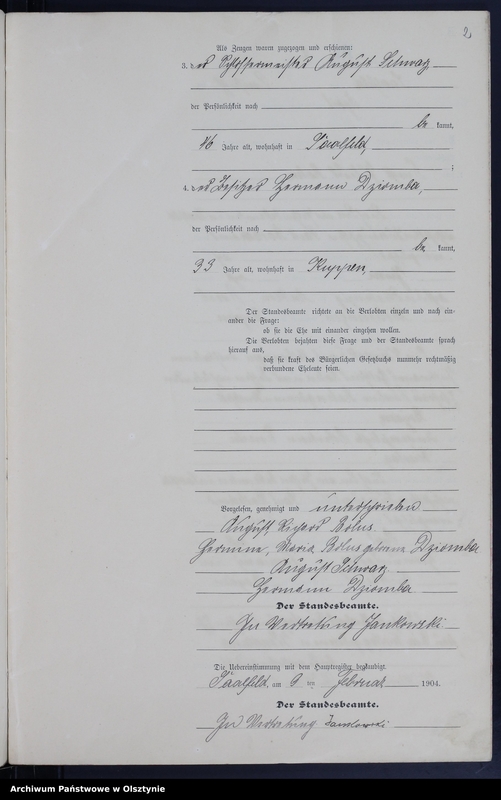 2
Als Zeugen waren zugezogen und erschienen:
3. der Schlossermeister August Schwarz
der Persönlichkeit nach
be kannt,
46 Jahre alt, wohnhaft in Saalfeld,
;
4. der Besitzer Hermann Dziomba,
der Persönlichkeit nach
be kannt,
33 Jahre alt, wohnhaft in Kuppen,
Der Standesbeamte richtete an die Verlobten einzeln und nach ein-
ander die Frage:
ob sie die Ehe mit einander eingehen wollen.
Die Verlobten bejahten diese Frage und der Standesbeamte sprach
hierauf aus,
daß sie kraft des Bürgerlichen Gesetzbuchs nunmehr rechtmäßig
verbundene Eheleute seien.
Vorgelesen, genehmigt und unterschrieben
August Richard Bolus.
Hermine, Maria Bolus geborene Dziomba
August Schwarz
Hermann Dziomba
Der Standesbeamte.
In Vertretung Jankowski
Die Uebereinstimmung mit dem Hauptregister beglaubigt.
Saalfeld, am 9 ten Februar 1904.
Der Standesbeamte.
In Vertretung Jankowski
Archiwum Państwowe w Olsztynie